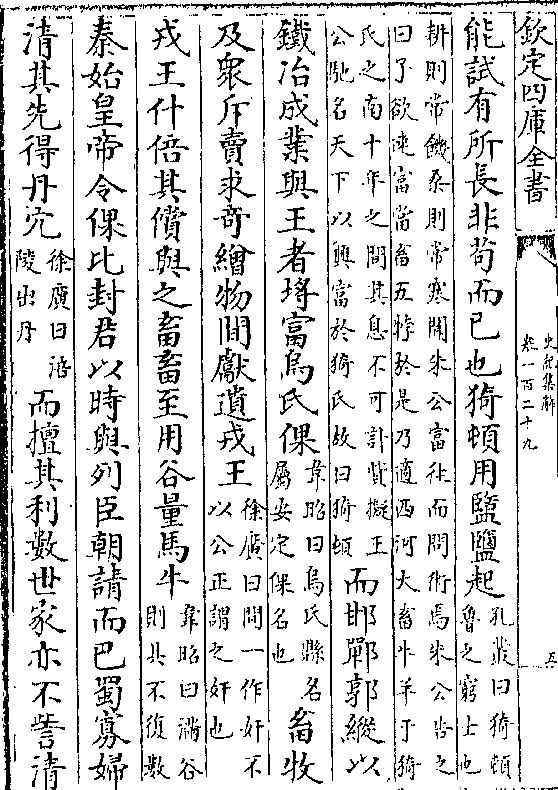 欽定四庫全書
史記集解
卷一百二十九
五
能試有所長非苟而已也猗頓用盬鹽起
孔叢曰猗頓
魯之窮士也
耕則常饑桑則常寒聞朱公富往而問術焉朱公告之
曰子欲速富當畜五牸於是乃適西河大畜牛羊于猗
氏之南十年之間其息不可計貲擬王
公馳名天下以興富於猗氏故曰猗頓
而邯鄲郭縱以
鐵冶成業與王者埒富烏氏倮
韋昭曰烏氏縣名
屬安定倮名也
畜牧
及衆斥賣求奇繒物間獻遺戎王
徐廣曰間一作奸不
以公正謂之奸也
戎王什倍其償與之畜畜至用谷量馬牛
韋昭曰滿谷
則具不復數
秦始皇帝令倮比封君以時與列臣朝請而巴蜀寡婦
清其先得丹穴
徐廣曰涪
陵出丹
而擅其利數世家亦不訾清